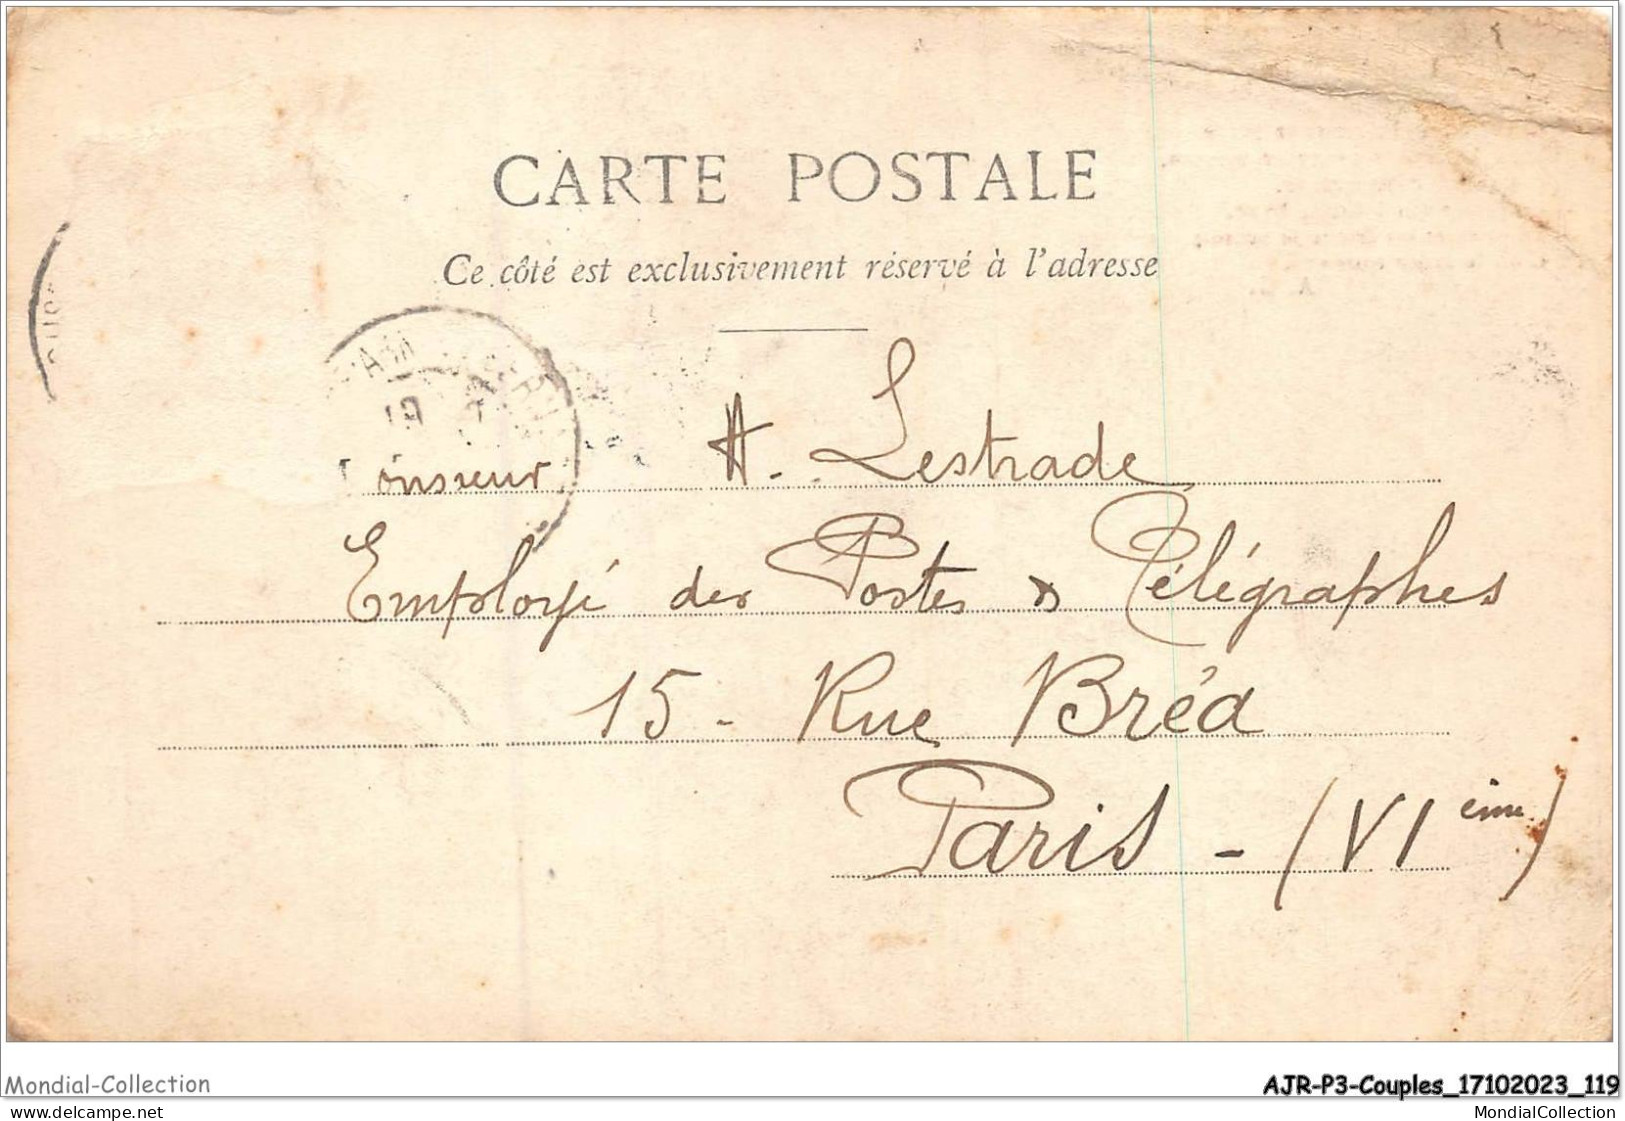 CARTE POSTALE
Ce côté est exclusivement réservé à l'adresse
onsieur A. Lestrade
Employé des Postes & Télégraphes
15 - Rue Bréa
Paris - (VI ème)
Mondial-Collection
AJR-P3-Couples_17102023_119
delcampe.net
MondialCollection